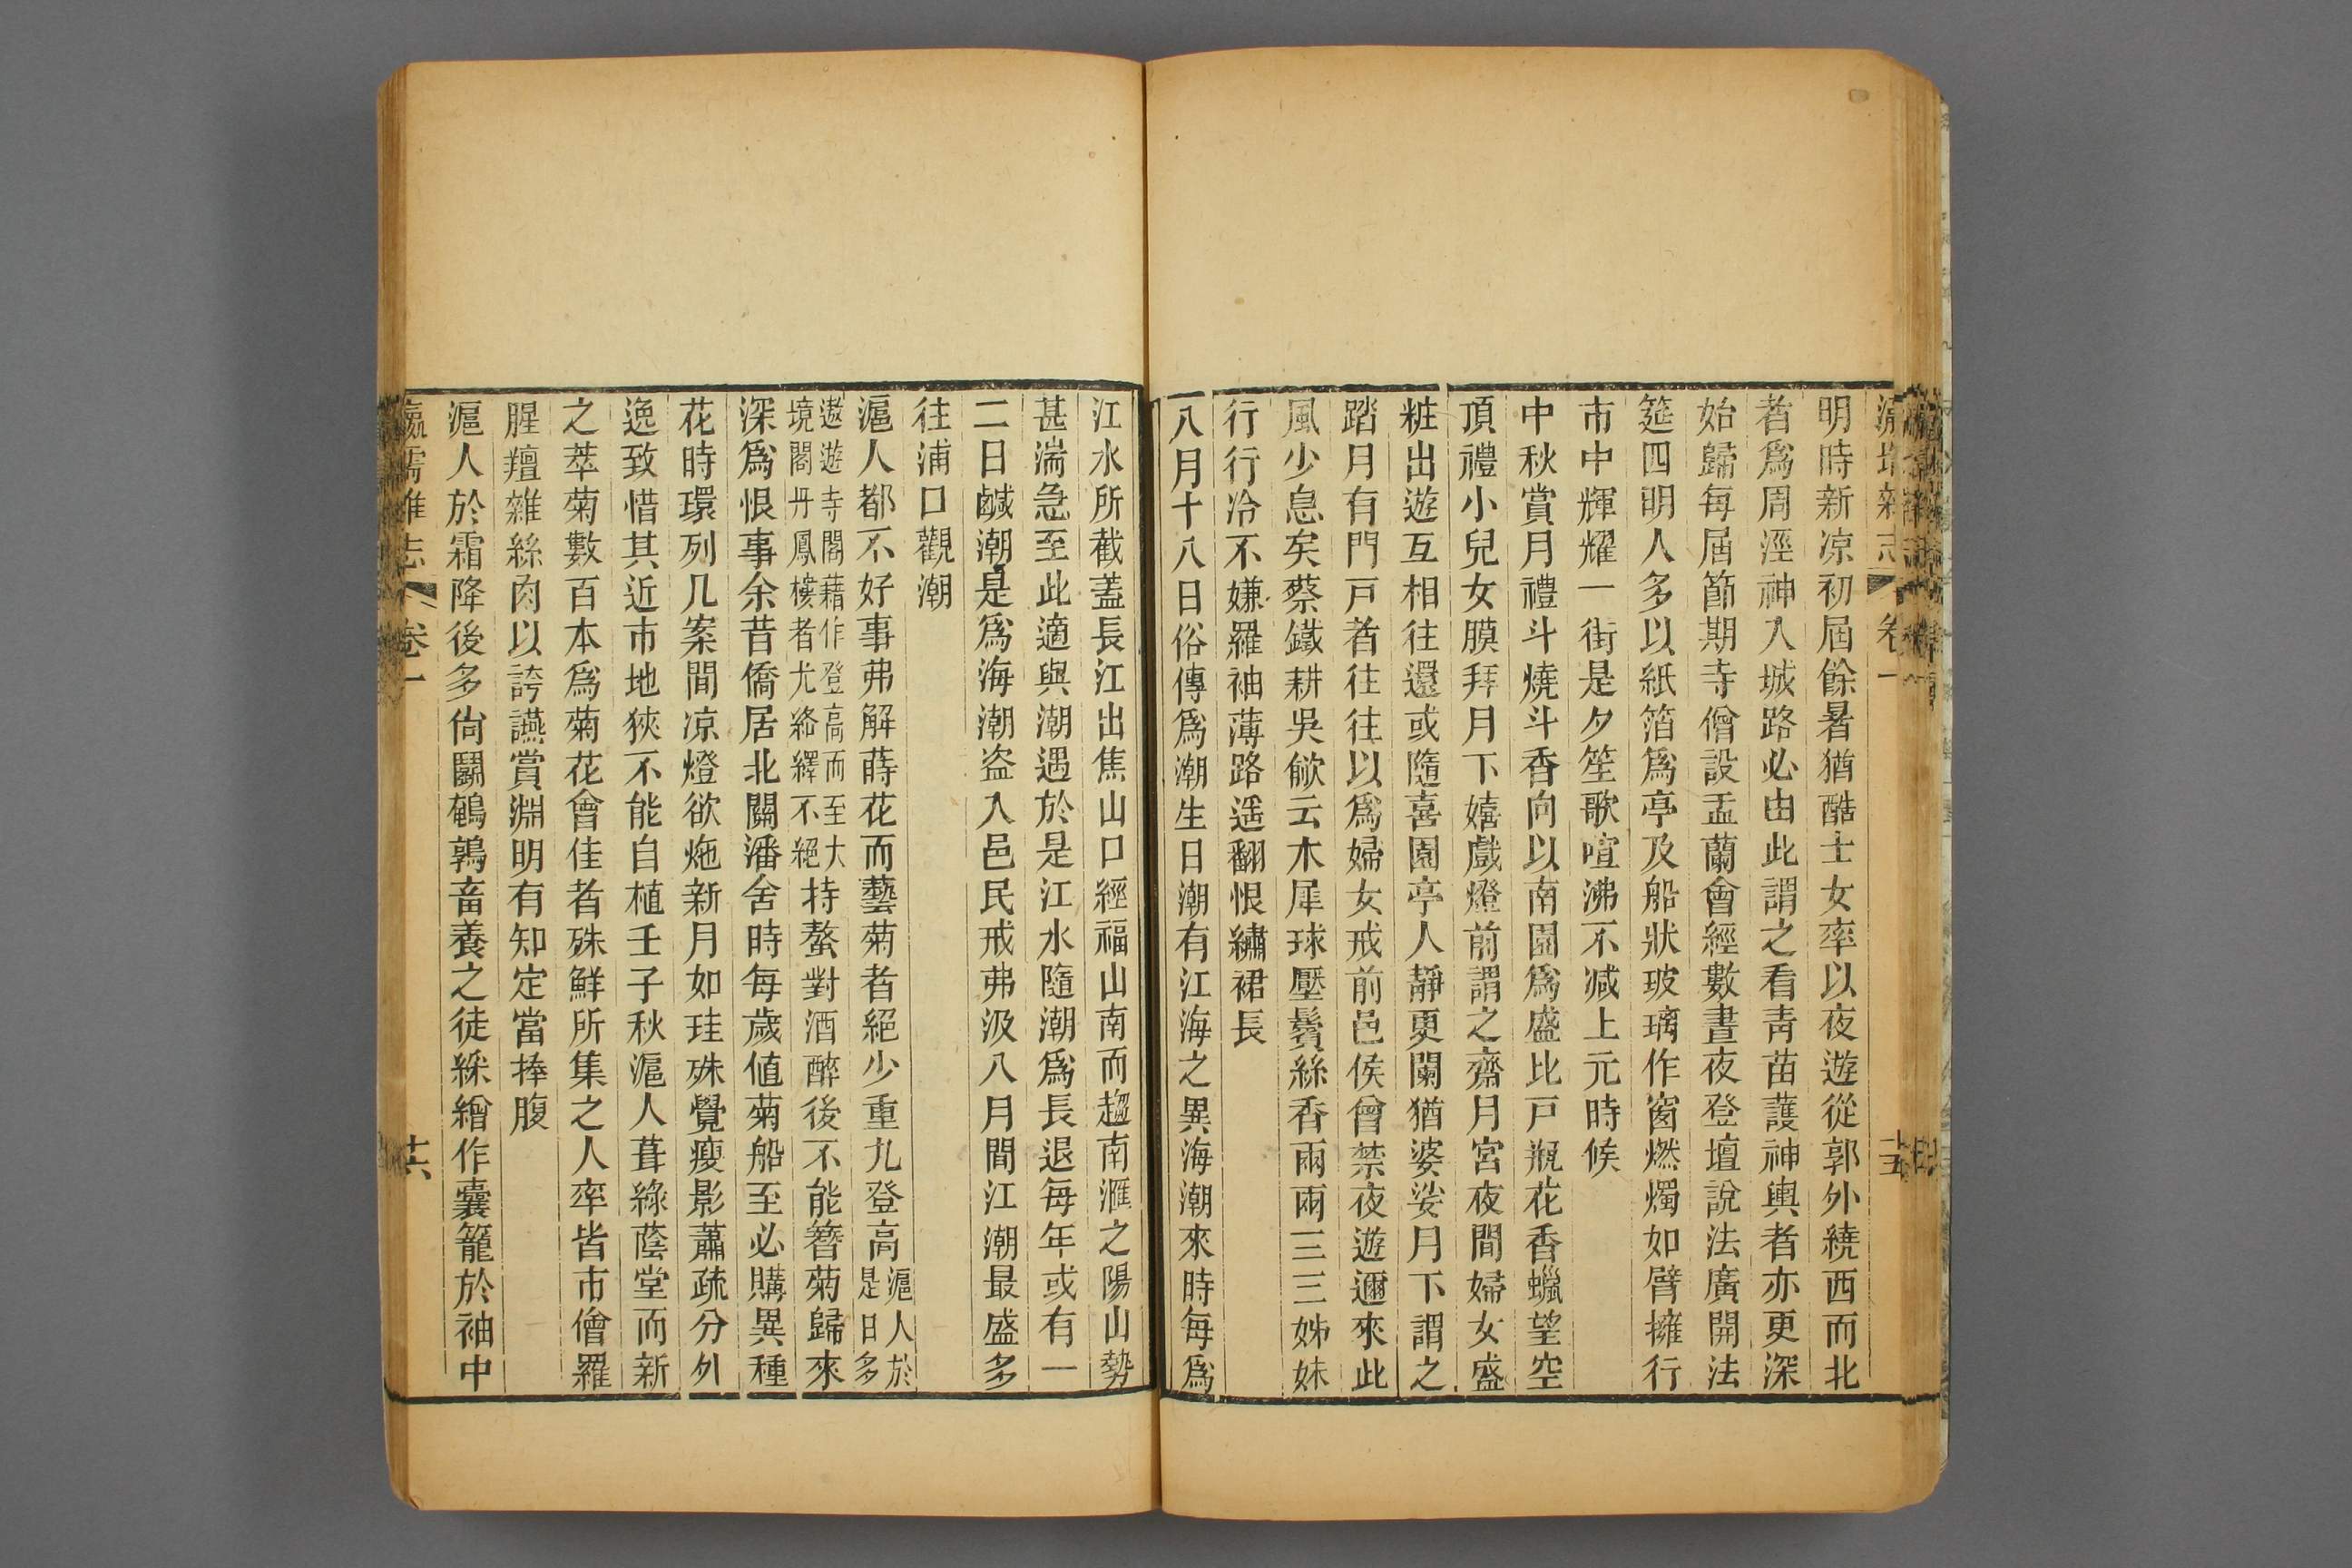 瀛壖雜志 卷一 十五
明時新凉初屆餘暑猶酷士女率以夜遊從郭外繞西而北
者爲周涇神入城路必由此謂之看靑苗護神輿者亦更深
始歸每屆節期寺僧設盂蘭會經數晝夜登壇說法廣開法
筵四明人多以紙箔爲亭及船狀玻璃作窗燃燭如臂擁行
市中輝耀一街是夕笙歌喧沸不减上元時候
中秋賞月禮斗燒斗香向以南園爲盛比戸瓶花香蠟望空
頂禮小兒女膜拜月下嬉戲燈前謂之齋月宮夜間婦女盛
粧出遊互相往還或隨喜園亭人靜更闌猶婆娑月下謂之
踏月有門戸者往往以爲婦女戒前邑侯曾禁夜遊邇來此
風少息矣蔡鐵耕吳歈云木犀球壓鬢絲香兩兩三三姊妹
行行冷不嫌羅袖薄路遥翻恨繡裙長
八月十八日俗傳爲潮生日潮有江海之異海潮來時每爲
江水所截蓋長江出焦山口經福山南而趨南滙之陽山勢
甚湍急至此適與潮遇於是江水隨潮爲長退每年或有一
二日鹹潮是爲海潮盗入邑民戒弗汲八月間江潮最盛多
往浦口觀潮
滬人都不好事弗解蒔花而藝菊者絕少重九登高滬人於
是日多
遨遊寺閣藉作登高而至大
境閣丹鳳樓者尤絡繹不絕持螯對酒醉後不能簪菊歸來
深爲恨事余昔僑居北關潘舍時每歲値菊船至必購異種
花時環列几案間凉燈欲灺新月如珪殊覺瘦影蕭疏分外
逸致惜其近市地狹不能自植壬子秋滬人葺綠蔭堂而新
之萃菊數百本爲菊花會佳者殊鮮所集之人率皆市儈羅
腥羶雜絲肉以誇讌賞淵明有知定當捧腹
滬人於霜降後多尙鬭鵪鶉畜養之徒綵繒作囊籠於袖中
瀛壖雜志 卷一 十六